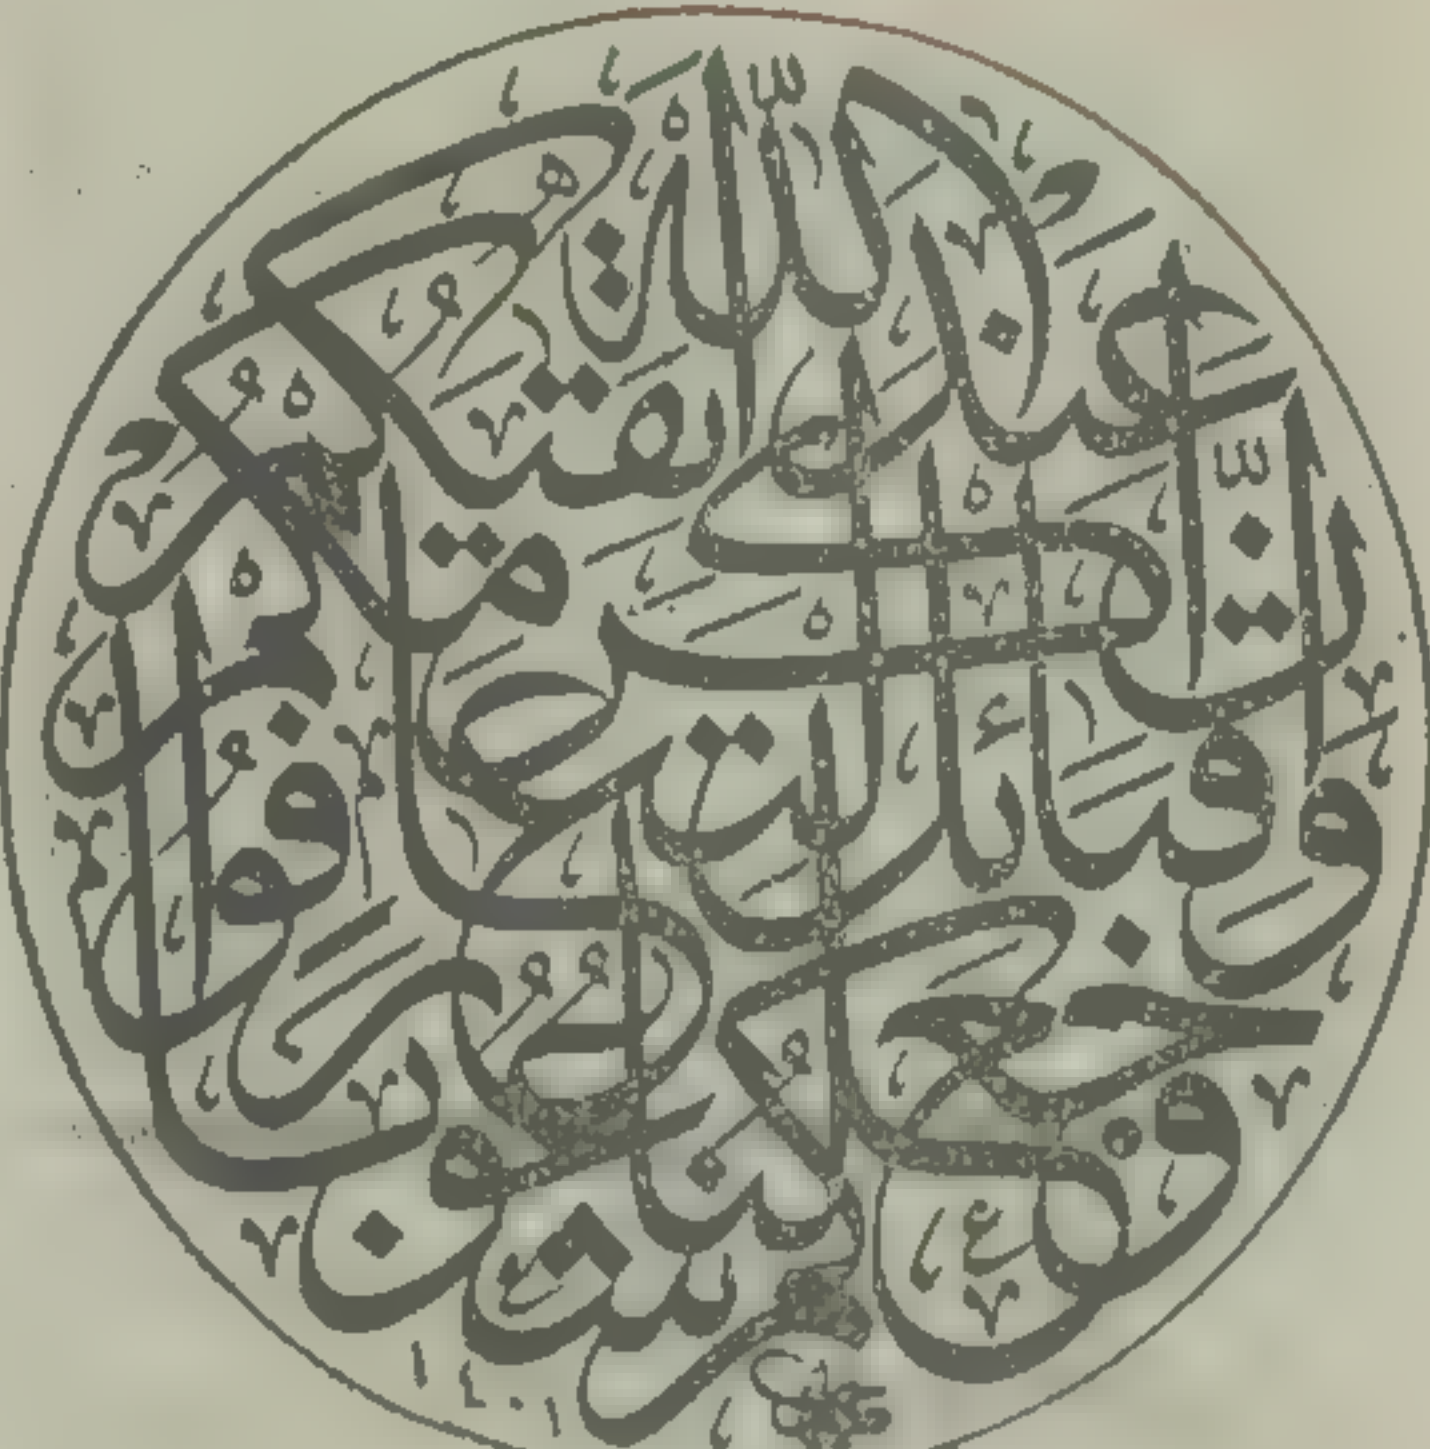 وجعلنكم شعوبا
وقبائل لتعارفوا
إن أكرمكم
عند الله أتقىكم
١٤٠١